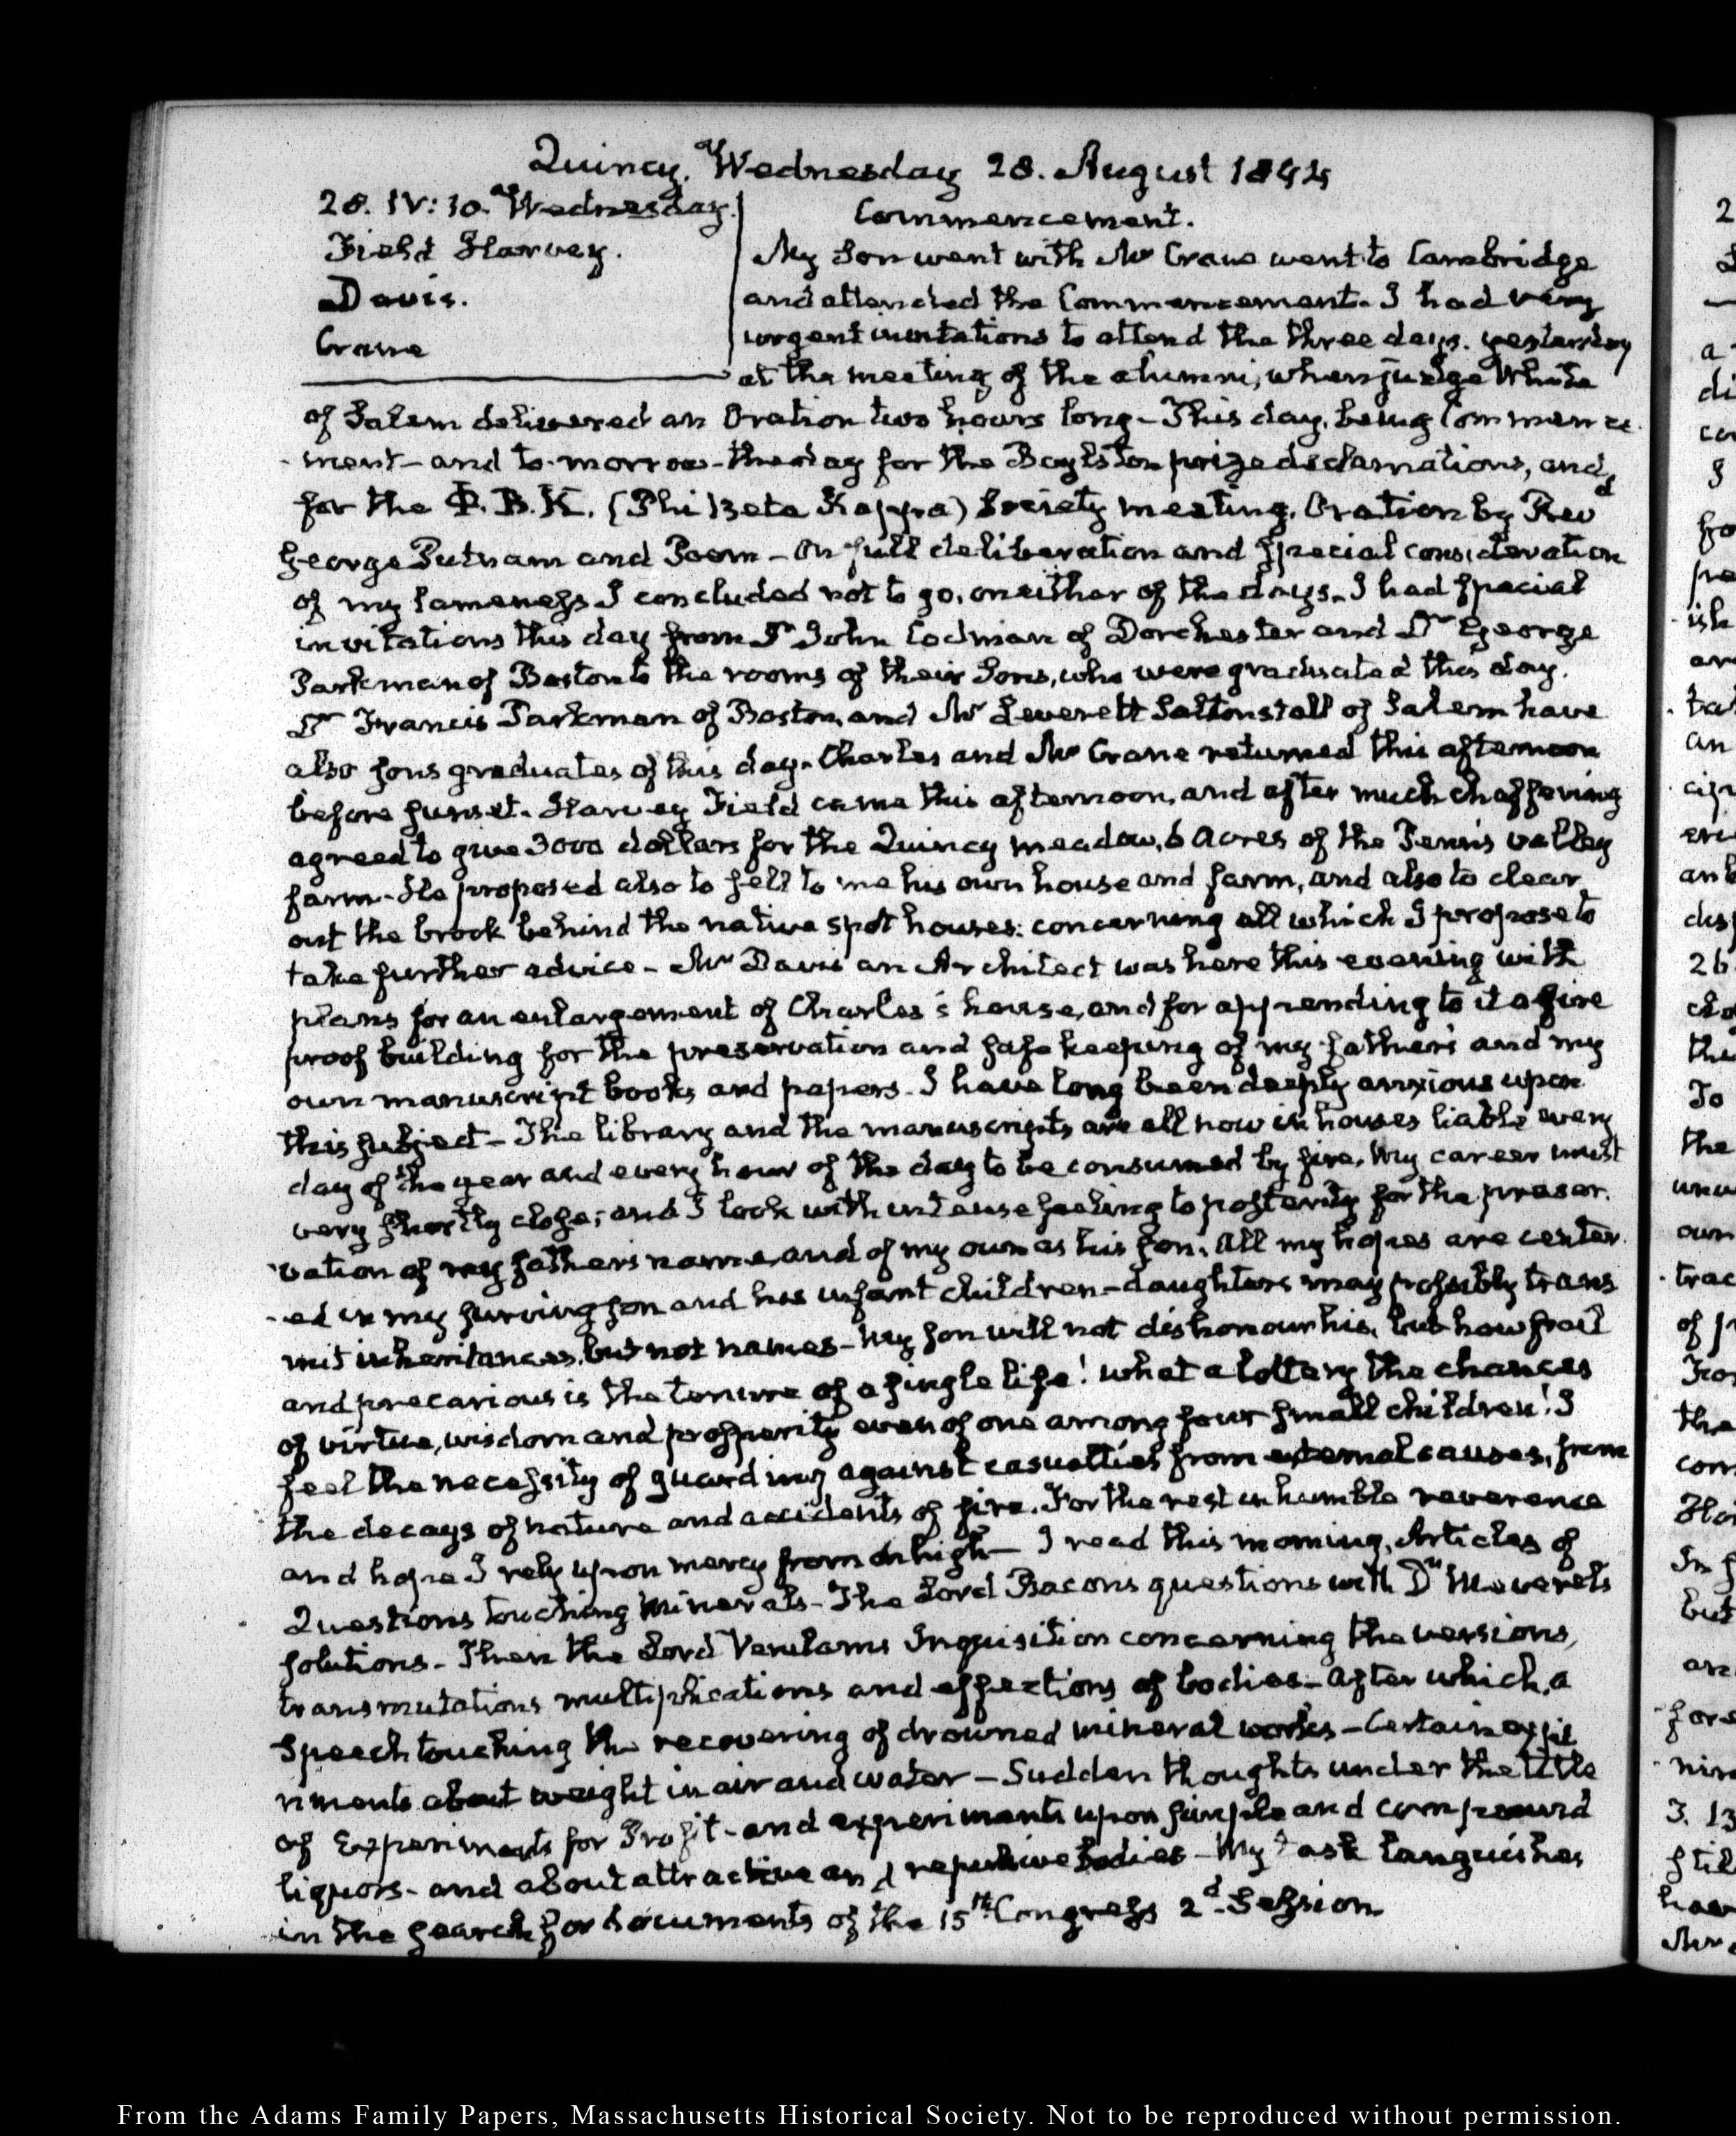 Quincy. Wednesday 28. August 1844
28. IV:30. Wednesday.
Field Harvey.
Davis.
Crane
Commencement.
My Son went with Mr Crane went to Cambridge
and attended the Commencement. I had very
urgent invitations to attend the three days. yesterday
at the meeting of the alumni, when judge White
of Salem delivered an Oration two hours long – This day, being Commence
ment – and to-morrow the day for the Boylston prize declamations, and
for the Φ. B. K. (Phi Beta Kappa) Society meeting, Oration by Revd
George Putnam and Poem – On full deliberation and special consideration
of my lameness I concluded not to go, on either of the days. I had special
invitations this day from Dr John Codman of Dorchester and Dr George
Parkman of Boston to the rooms of their Sons, who were graduated this day.
Dr Francis Parkman of Boston, and Mr Leverett Saltonstall of Salem have
also sons graduates of this day. Charles and Mr Crane returned this afternoon
before sunset. Harvey Field came this afternoon, and after much chaffering
agreed to give 3000 dollars for the Quincy meadow, 6 Acres of the Penns valley
farm. He proposed also to sell to me his own house and farm, and also to clear
out the brook behind the native spot houses: concerning all which I propose to
take further advice – Mr Davis an Architect was here this evening with
plans for an enlargement of Charles's house, and for appending to it a fire
proof building for the preservation and safe keeping of my father's and my
own manuscript books and papers. I have long been deeply anxious upon
this subject – The library and the manuscripts are all now in houses liable every
day of the year and every hour of the day to be consumed by fire. My career must
very shortly close; and I look with intense feeling to posterity for the preser.
vation of my father's name, and of my own as his son. All my hopes are center
-ed in my surving son and his infant children – daughters may possibly trans
mit inheritances, but not names – My son will not dishonour his, but how frail
and precarious is the tenure of a single life! what a lottery the chances
of virtue, wisdom and prosperity even of one among four small children! I
feel the necessity of guarding against casualties from external causes, from
the decays of nature and accidents of fire. For the rest in humble reverence
and hope I rely upon mercy from on high – I read this morning, Articles of
Questions touching Minerals – The Lord Bacons questions with Dr Meverels
solutions – Then the Lord Verulams Inquisition concerning the versions,
transmutations multiplications and affections of bodies – After which, a
Speech touching the recovering of drowned mineral works – Certain expe
riments about weight in air and water – Sudden thoughts under the title
of Experiments for Profit – and experiments upon simple and compound
liquors – and about attractive and repulsive Bodies – My task languishes
in the search for documents of the 15th Congress 2d Session
From the Adams Family Papers, Massachusetts Historical Society. Not to be reproduced without permission.